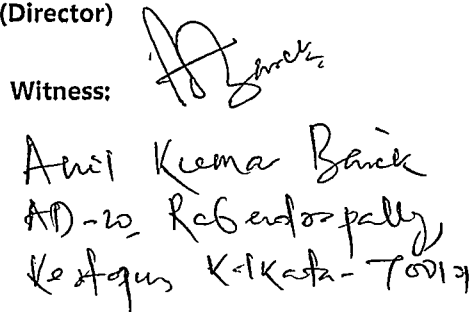 (Director)
Witness:
Anil Kumar Barik
AD-20, Rabendrapally,
Kestopur, Kolkata-